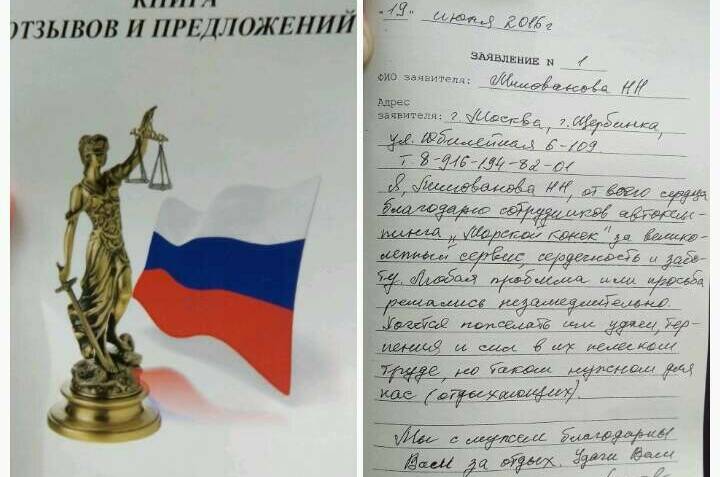 КНИГА
ОТЗЫВОВ И ПРЕДЛОЖЕНИЙ
"19" июля 2016 г
ЗАЯВЛЕНИЕ N 1
ФИО заявителя: Милованова НН
Адрес
заявителя: г Москва, г. Щербинка,
ул. Юбилейная 6-109
т. 8-916-194-82-01
Я, Милованова НН, от всего сердца
благодарю сотрудников автокем-
пинга „Морской конек" за велико-
лепный сервис, сердечность и забо-
ту. Любая проблема или просьба
решались незамедлительно.
Хочется пожелать им удачи, тер-
пения и сил в их нелегком
труде, но таком нужном для
нас (отдыхающих).
Мы с мужем благодарны
Вам за отдых. Удачи Вам